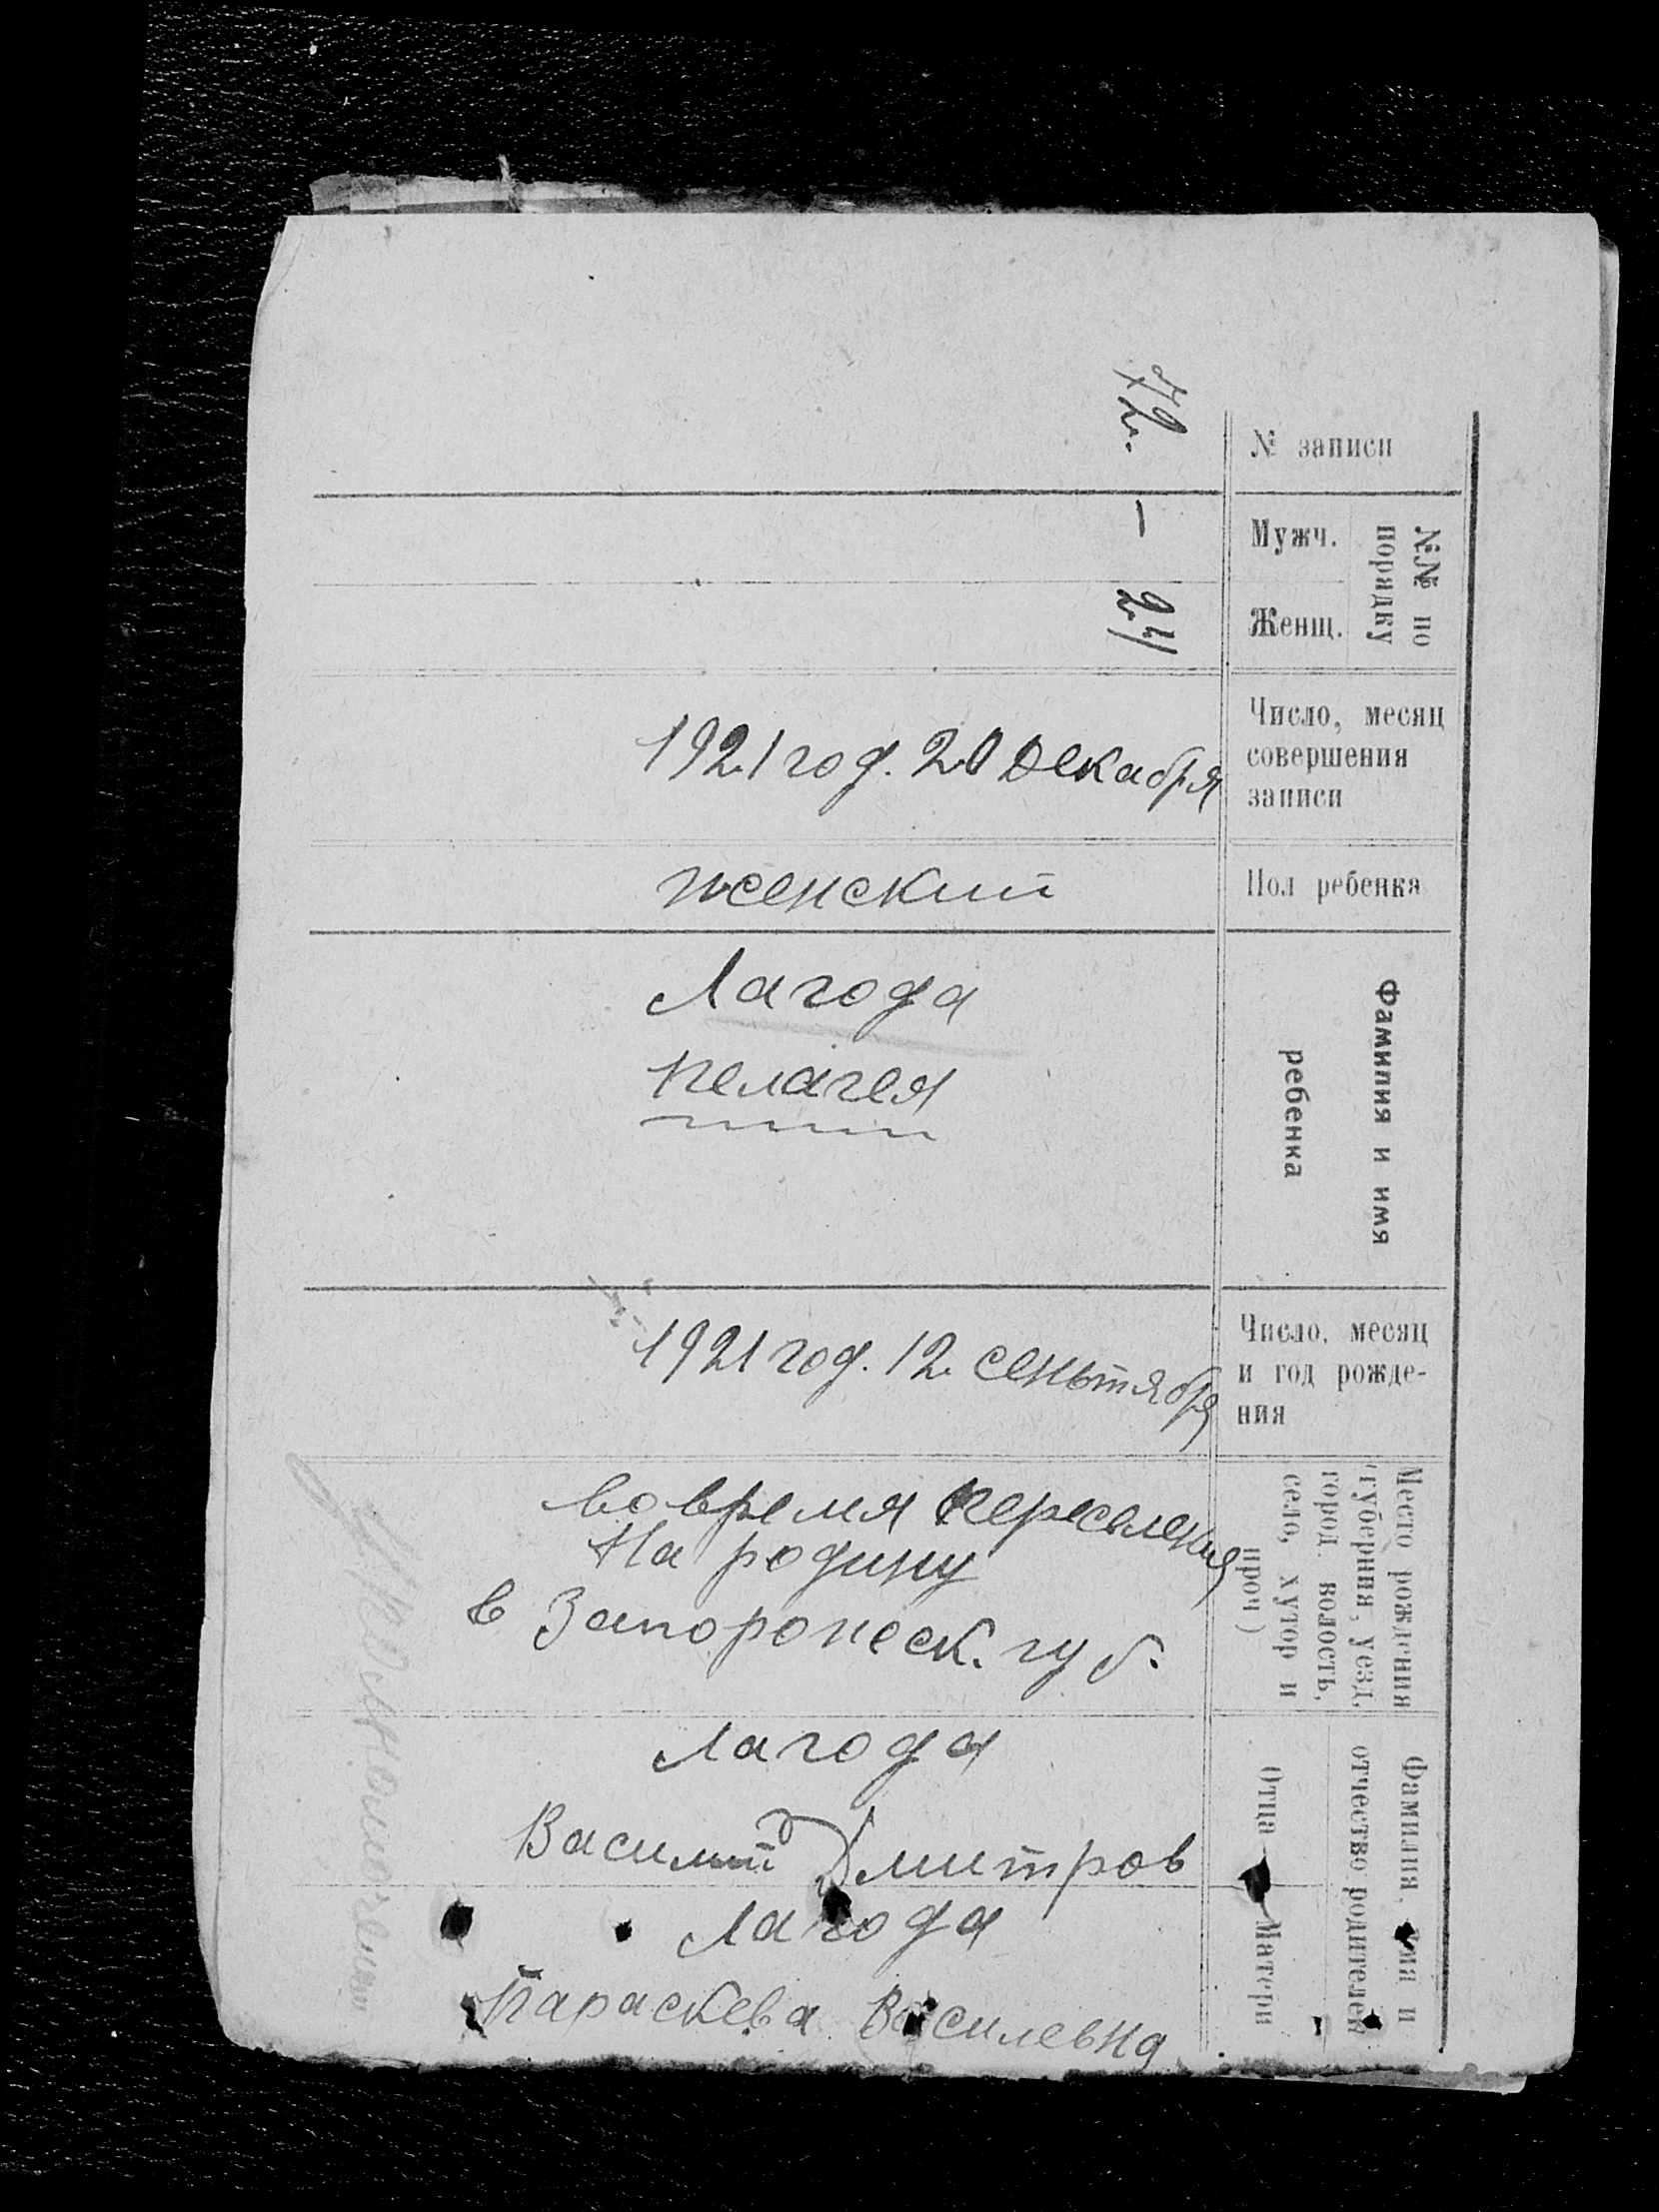 № записи
72.
№№ по
порядку
Мужч.
—
Женщ.
24
Число, месяц
совершения
записи
1921 год. 20 Декабря
Пол ребенка
женский
Фамилия и имя
ребенка
Лагода
Пелагея
Число, месяц
и год рожде-
ния
1921 год. 12 сеньтября
Место рождения
(губерния, уезд,
город, волость,
село, хутор и
проч)
во время переселения
На родину
в Запорожеск. губ.
Фамилия, имя и
отчество родителей
Отца
Лагода
Василий Дмитров
Матери
Лагода
Параскева Василевна